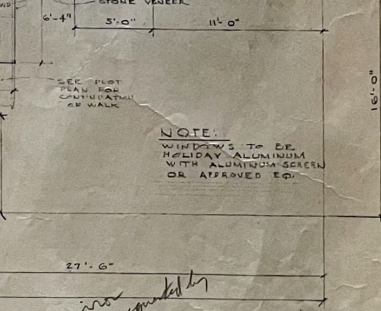 STONE VENEER
6'-4"
5'-0"
11'-0"
SEE PLOT
PLAN FOR
CONTINUATION
OF WALK
16'-0"
NOTE:
WINDOWS TO BE
HOLIDAY ALUMINUM
WITH ALUMINUM SCREEN
OR APPROVED EQ.
27'-6"
by